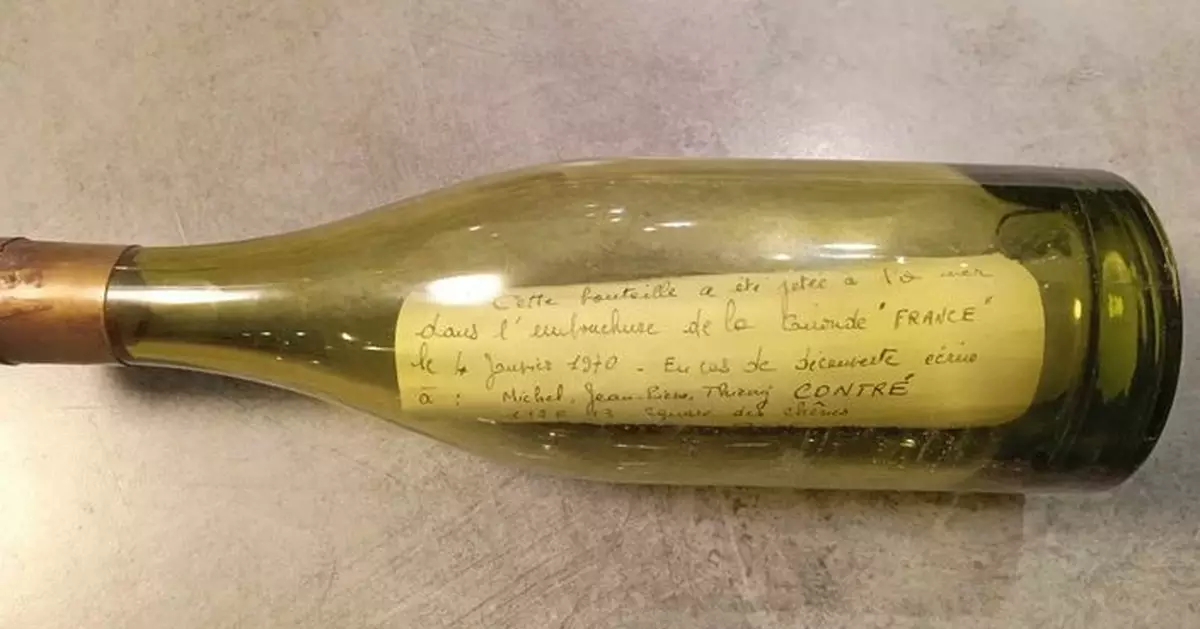 Cette bouteille a été jetée à la mer
dans l'embouchure de la Gironde "FRANCE"
le 4 Janvier 1970 - En cas de découverte écrire
à : Michel, Jean-Pierre, Thierry CONTRÉ
13 Square des Chênes